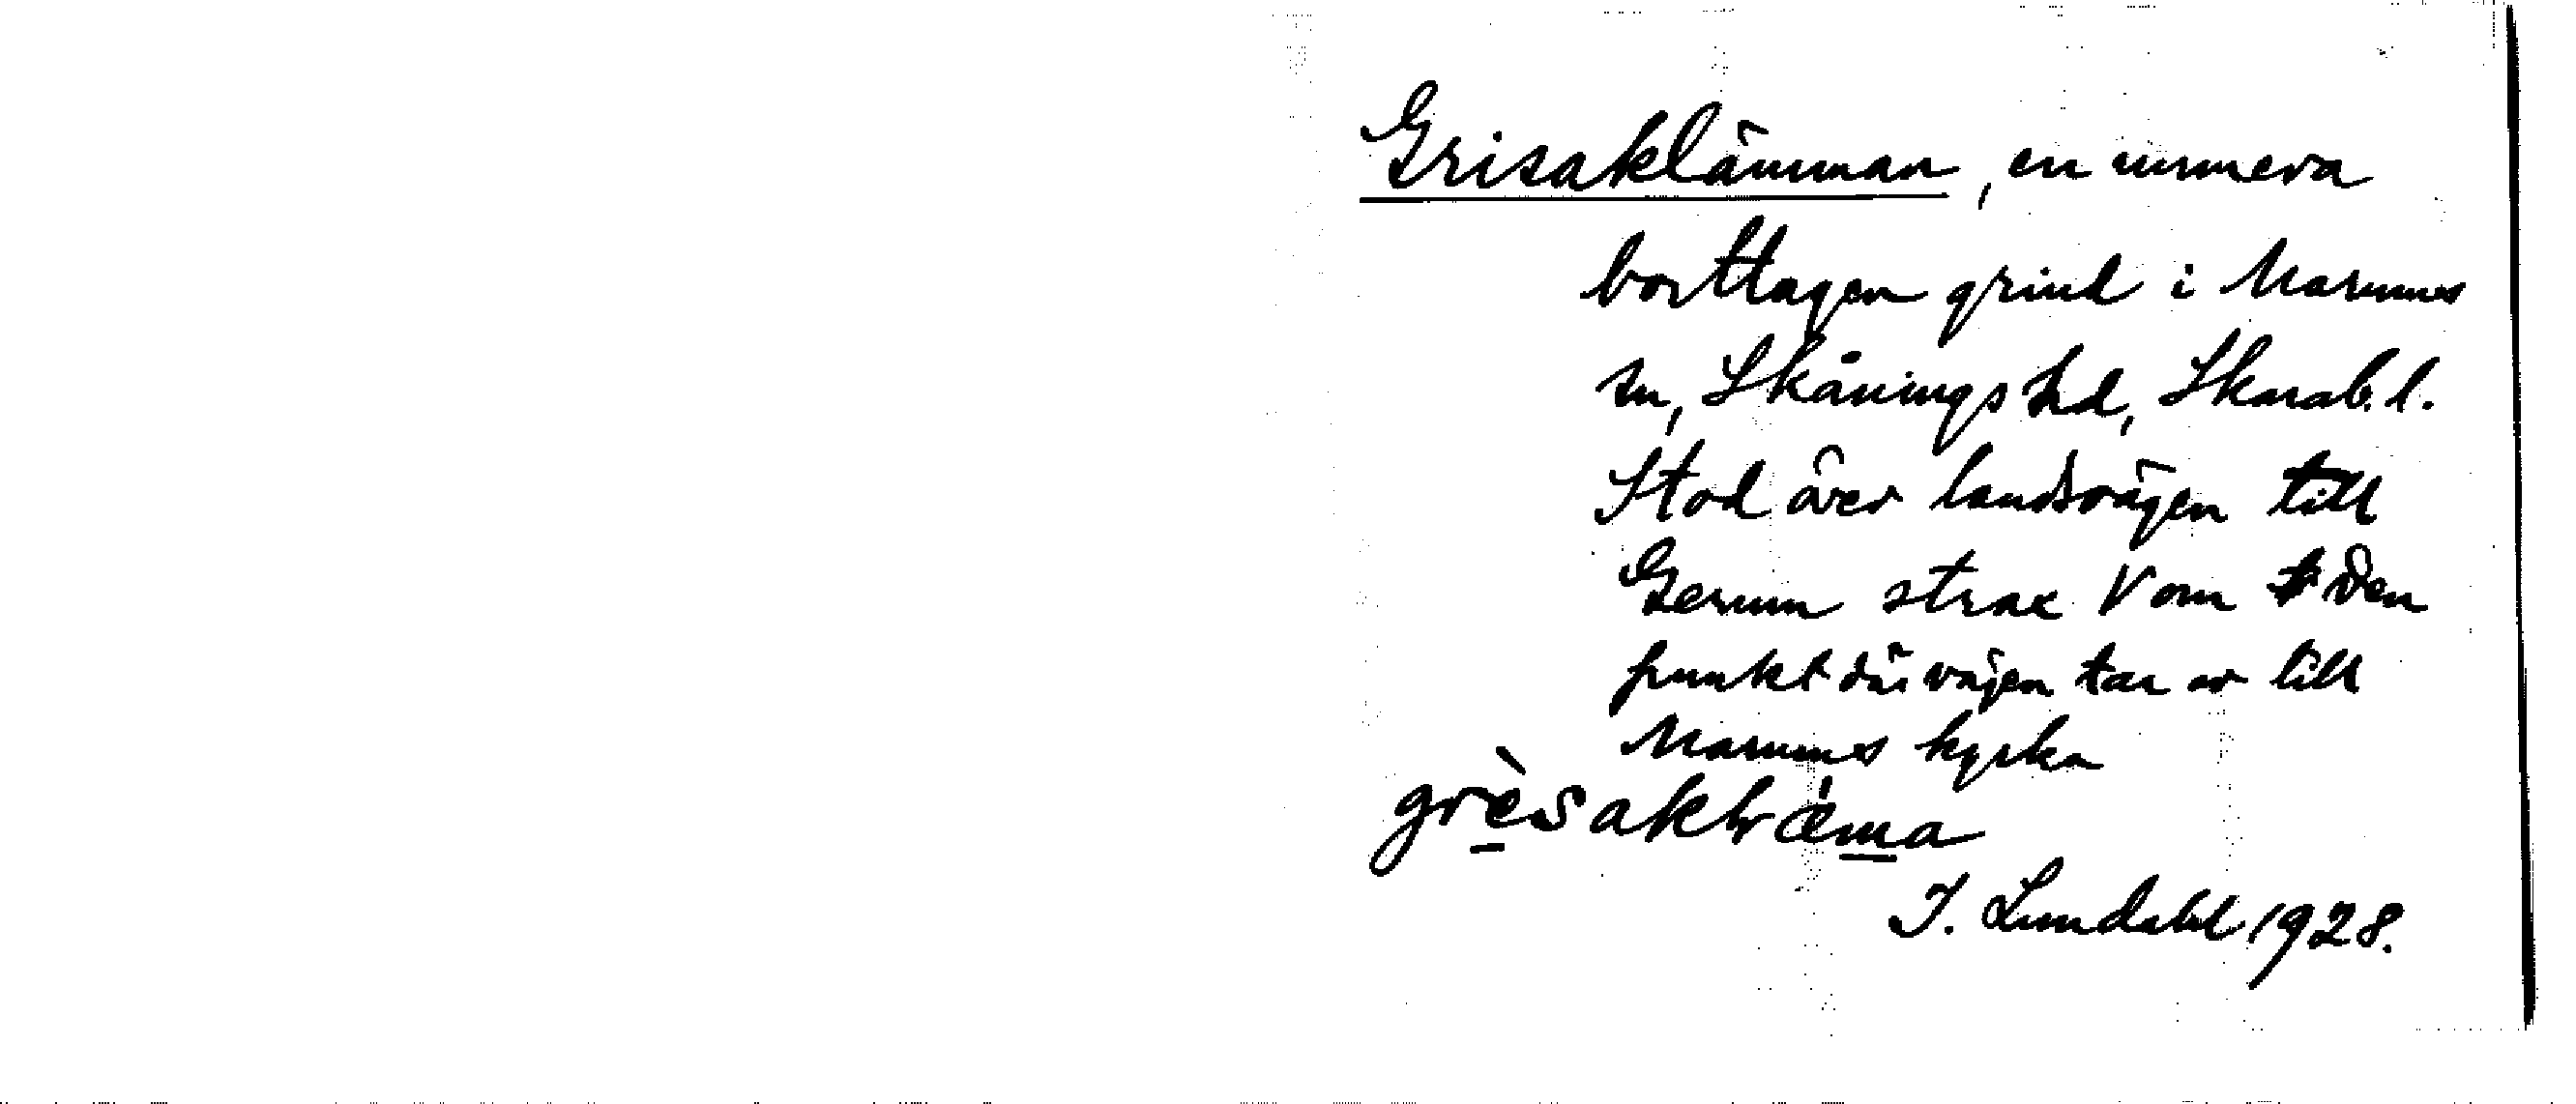 Grisaklämman, en numera
borttagen grind i Marums
sn, Skånings hd, Skarab. l.
Stod över landsvägen till
Gerum strax V om den
punkt där vägen tar av till
Marums kyrka
grèsaklræma
I. Lundahl 1928.